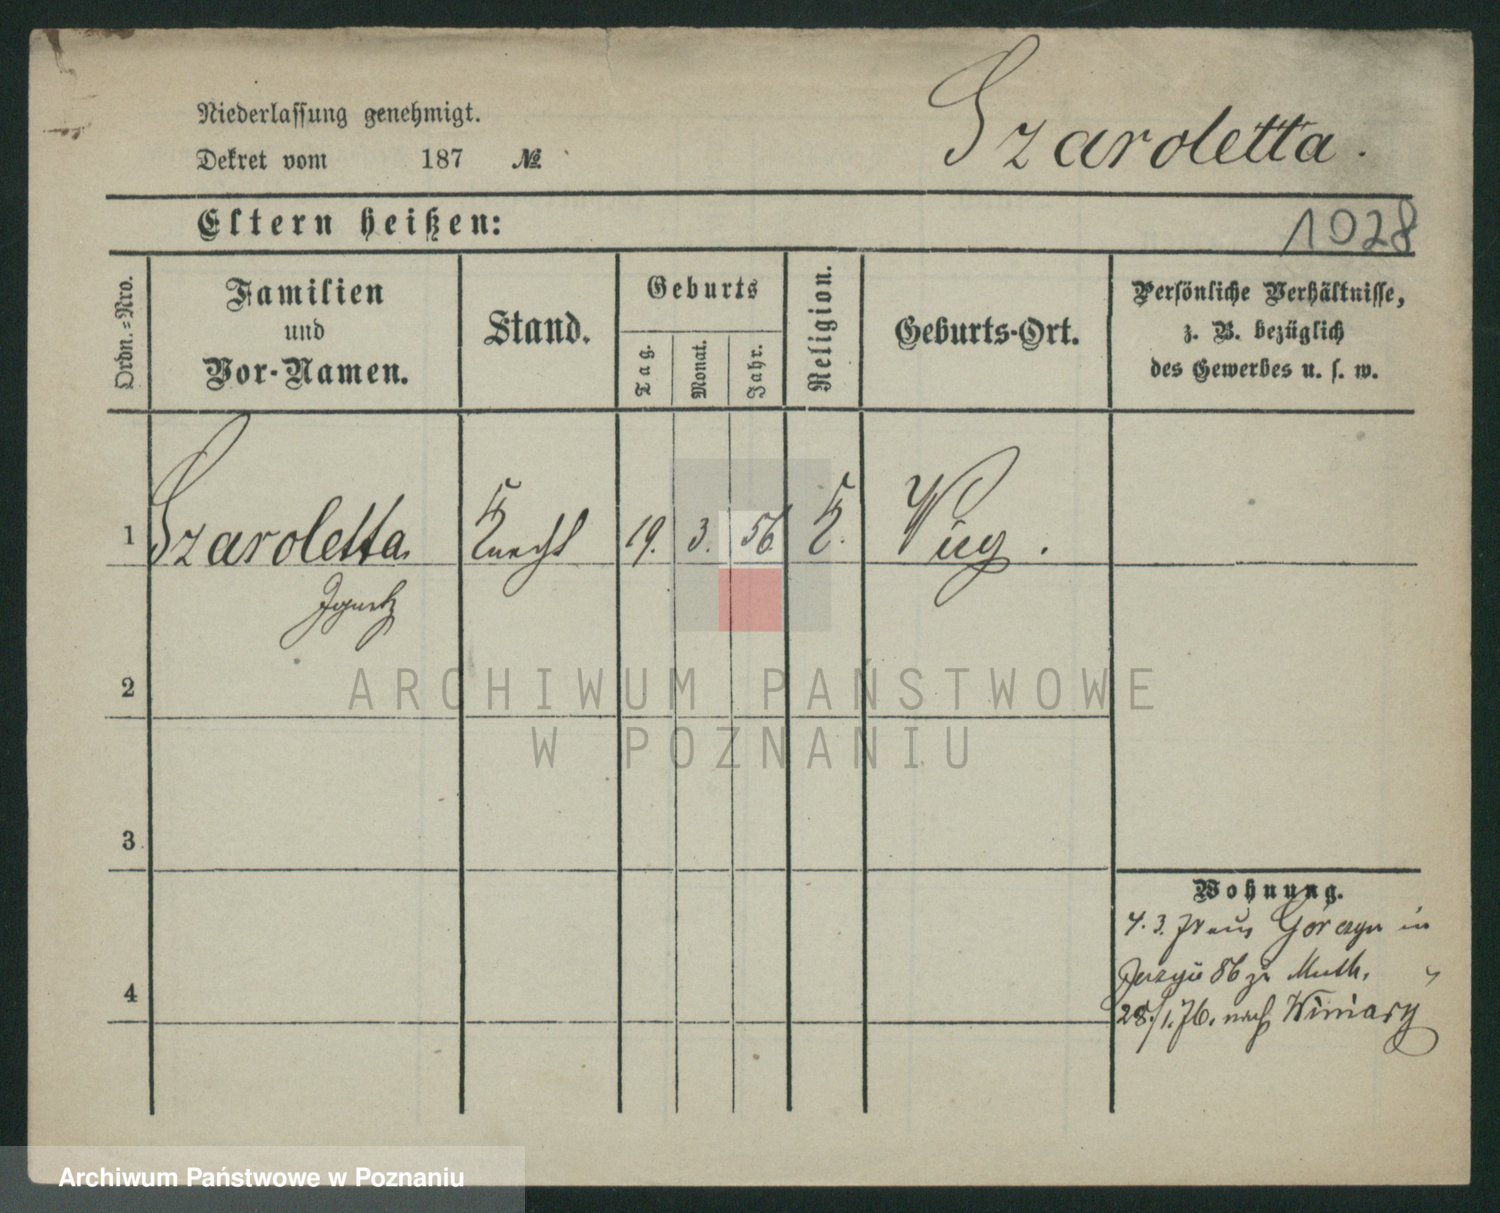 Szaroletta.
Niederlassung genehmigt.
Dekret vom 187 №
Eltern heißen:
1028
Ordn.=Nro.
Familien
und
Vor-Namen.
Stand.
Geburts
Tag.
Monat.
Jahr.
Religion.
Geburts-Ort.
Persönliche Verhältnisse,
z. B. bezüglich
des Gewerbes u. s. w.
1 Szaroletta Knecht 19. 3. 56. K.
Ignatz
2
3
4
Wohnung.
4. 3. aus in
28/1. 76. nach Winiary
ARCHIWUM PAŃSTWOWE
W POZNANIU
Archiwum Państwowe w Poznaniu